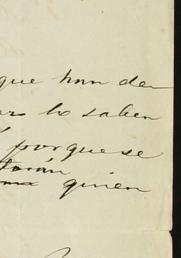 que han de
lo saben
porque se
quien